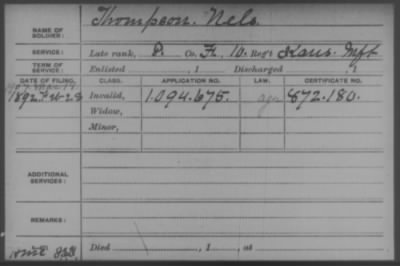 NAME OF SOLDIER: Thompson. Nels.
SERVICE: Late rank, P. Co. F, 10. Reg't Kans. Inft
TERM OF SERVICE: Enlisted , 1 Discharged , 1
DATE OF FILING. CLASS. APPLICATION NO. LAW. CERTIFICATE NO.
1892 Invalid, 1.094.675. 872.180.
Widow,
Minor,
ADDITIONAL SERVICES:
REMARKS:
Died , 1 , at